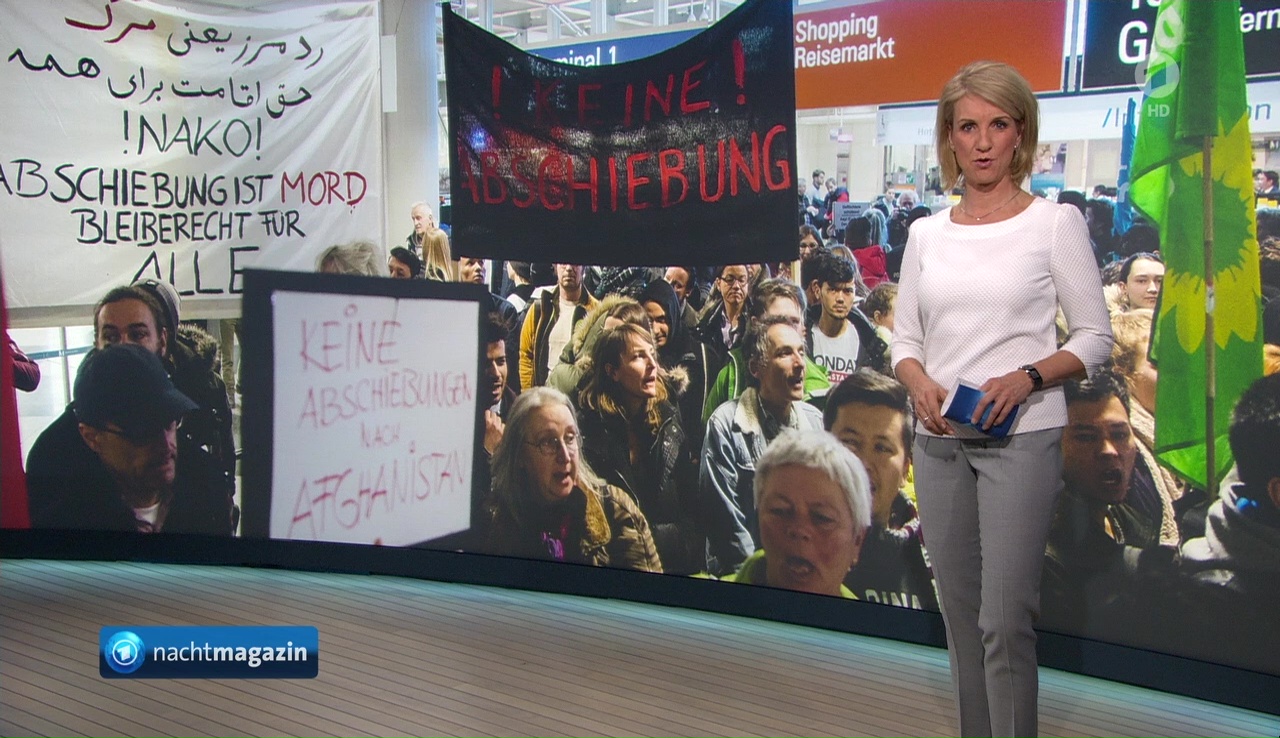 رد مرز یعنی مرگ
حق اقامت برای همه
!NAKO!
ABSCHIEBUNG IST MORD
BLEIBERECHT FÜR
ALLE
! KEINE !
ABSCHIEBUNG
KEINE
ABSCHIEBUNGEN
NACH
AFGHANISTAN
Terminal 1
Shopping
Reisemarkt
HD
nachtmagazin